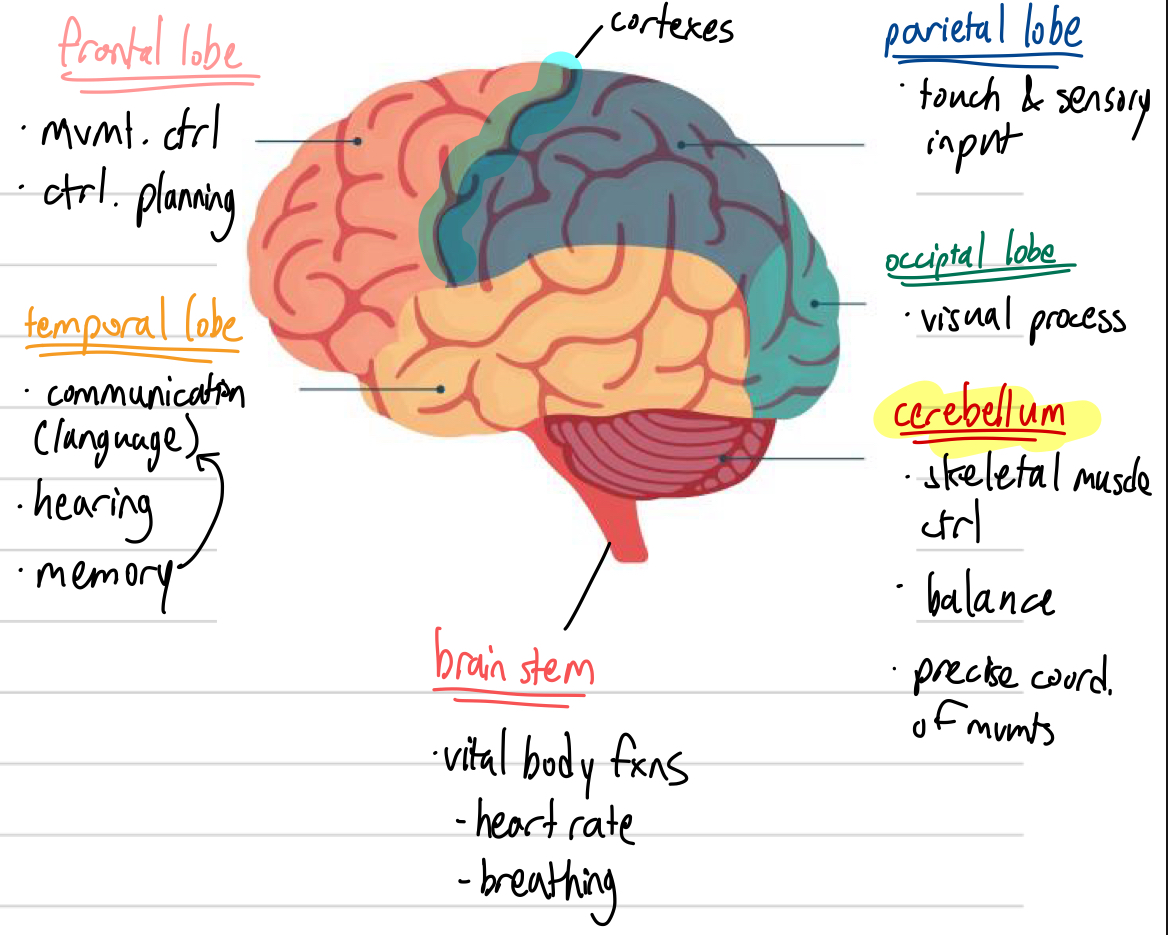 cortexes
frontal lobe
· mvmt. ctrl
· ctrl. planning
temporal lobe
· communication
(language)
· hearing
· memory
parietal lobe
· touch & sensory
input
occiptal lobe
· visual process
cerebellum
· skeletal muscle
ctrl
· balance
· precise coord.
of mvmts
brain stem
· vital body fxns
- heart rate
- breathing